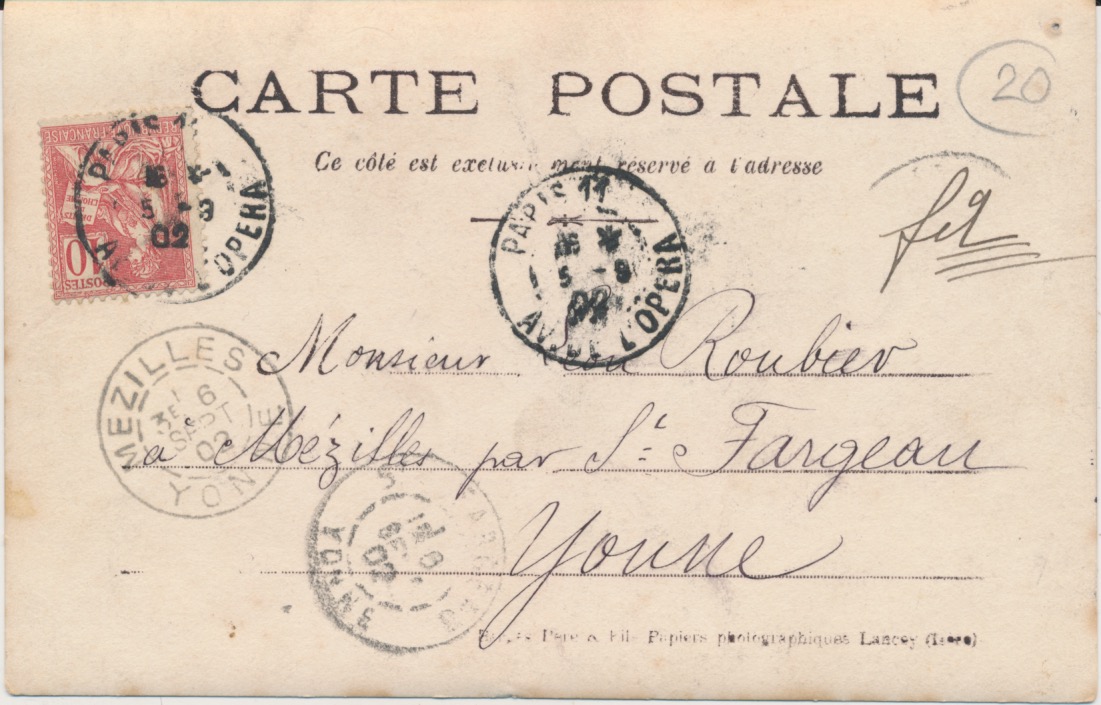 CARTE POSTALE
20
Ce côté est exclusivement réservé à l'adresse
RÉPUBLIQUE FRANÇAISE
DROITS DE L'HOMME
10
POSTES
PARIS 11
5 - 9
02
AV. DE L'OPERA
PARIS 11
5 - 9
02
AV. DE L'OPERA
Monsieur Roubier
a Mézilles par St Fargeau
Yonne
MEZILLES
6
SEPT
02
YONNE
ST FARGEAU
6
SEPT
02
YONNE
Père & Fils Papiers photographiques Lancey (Isère)